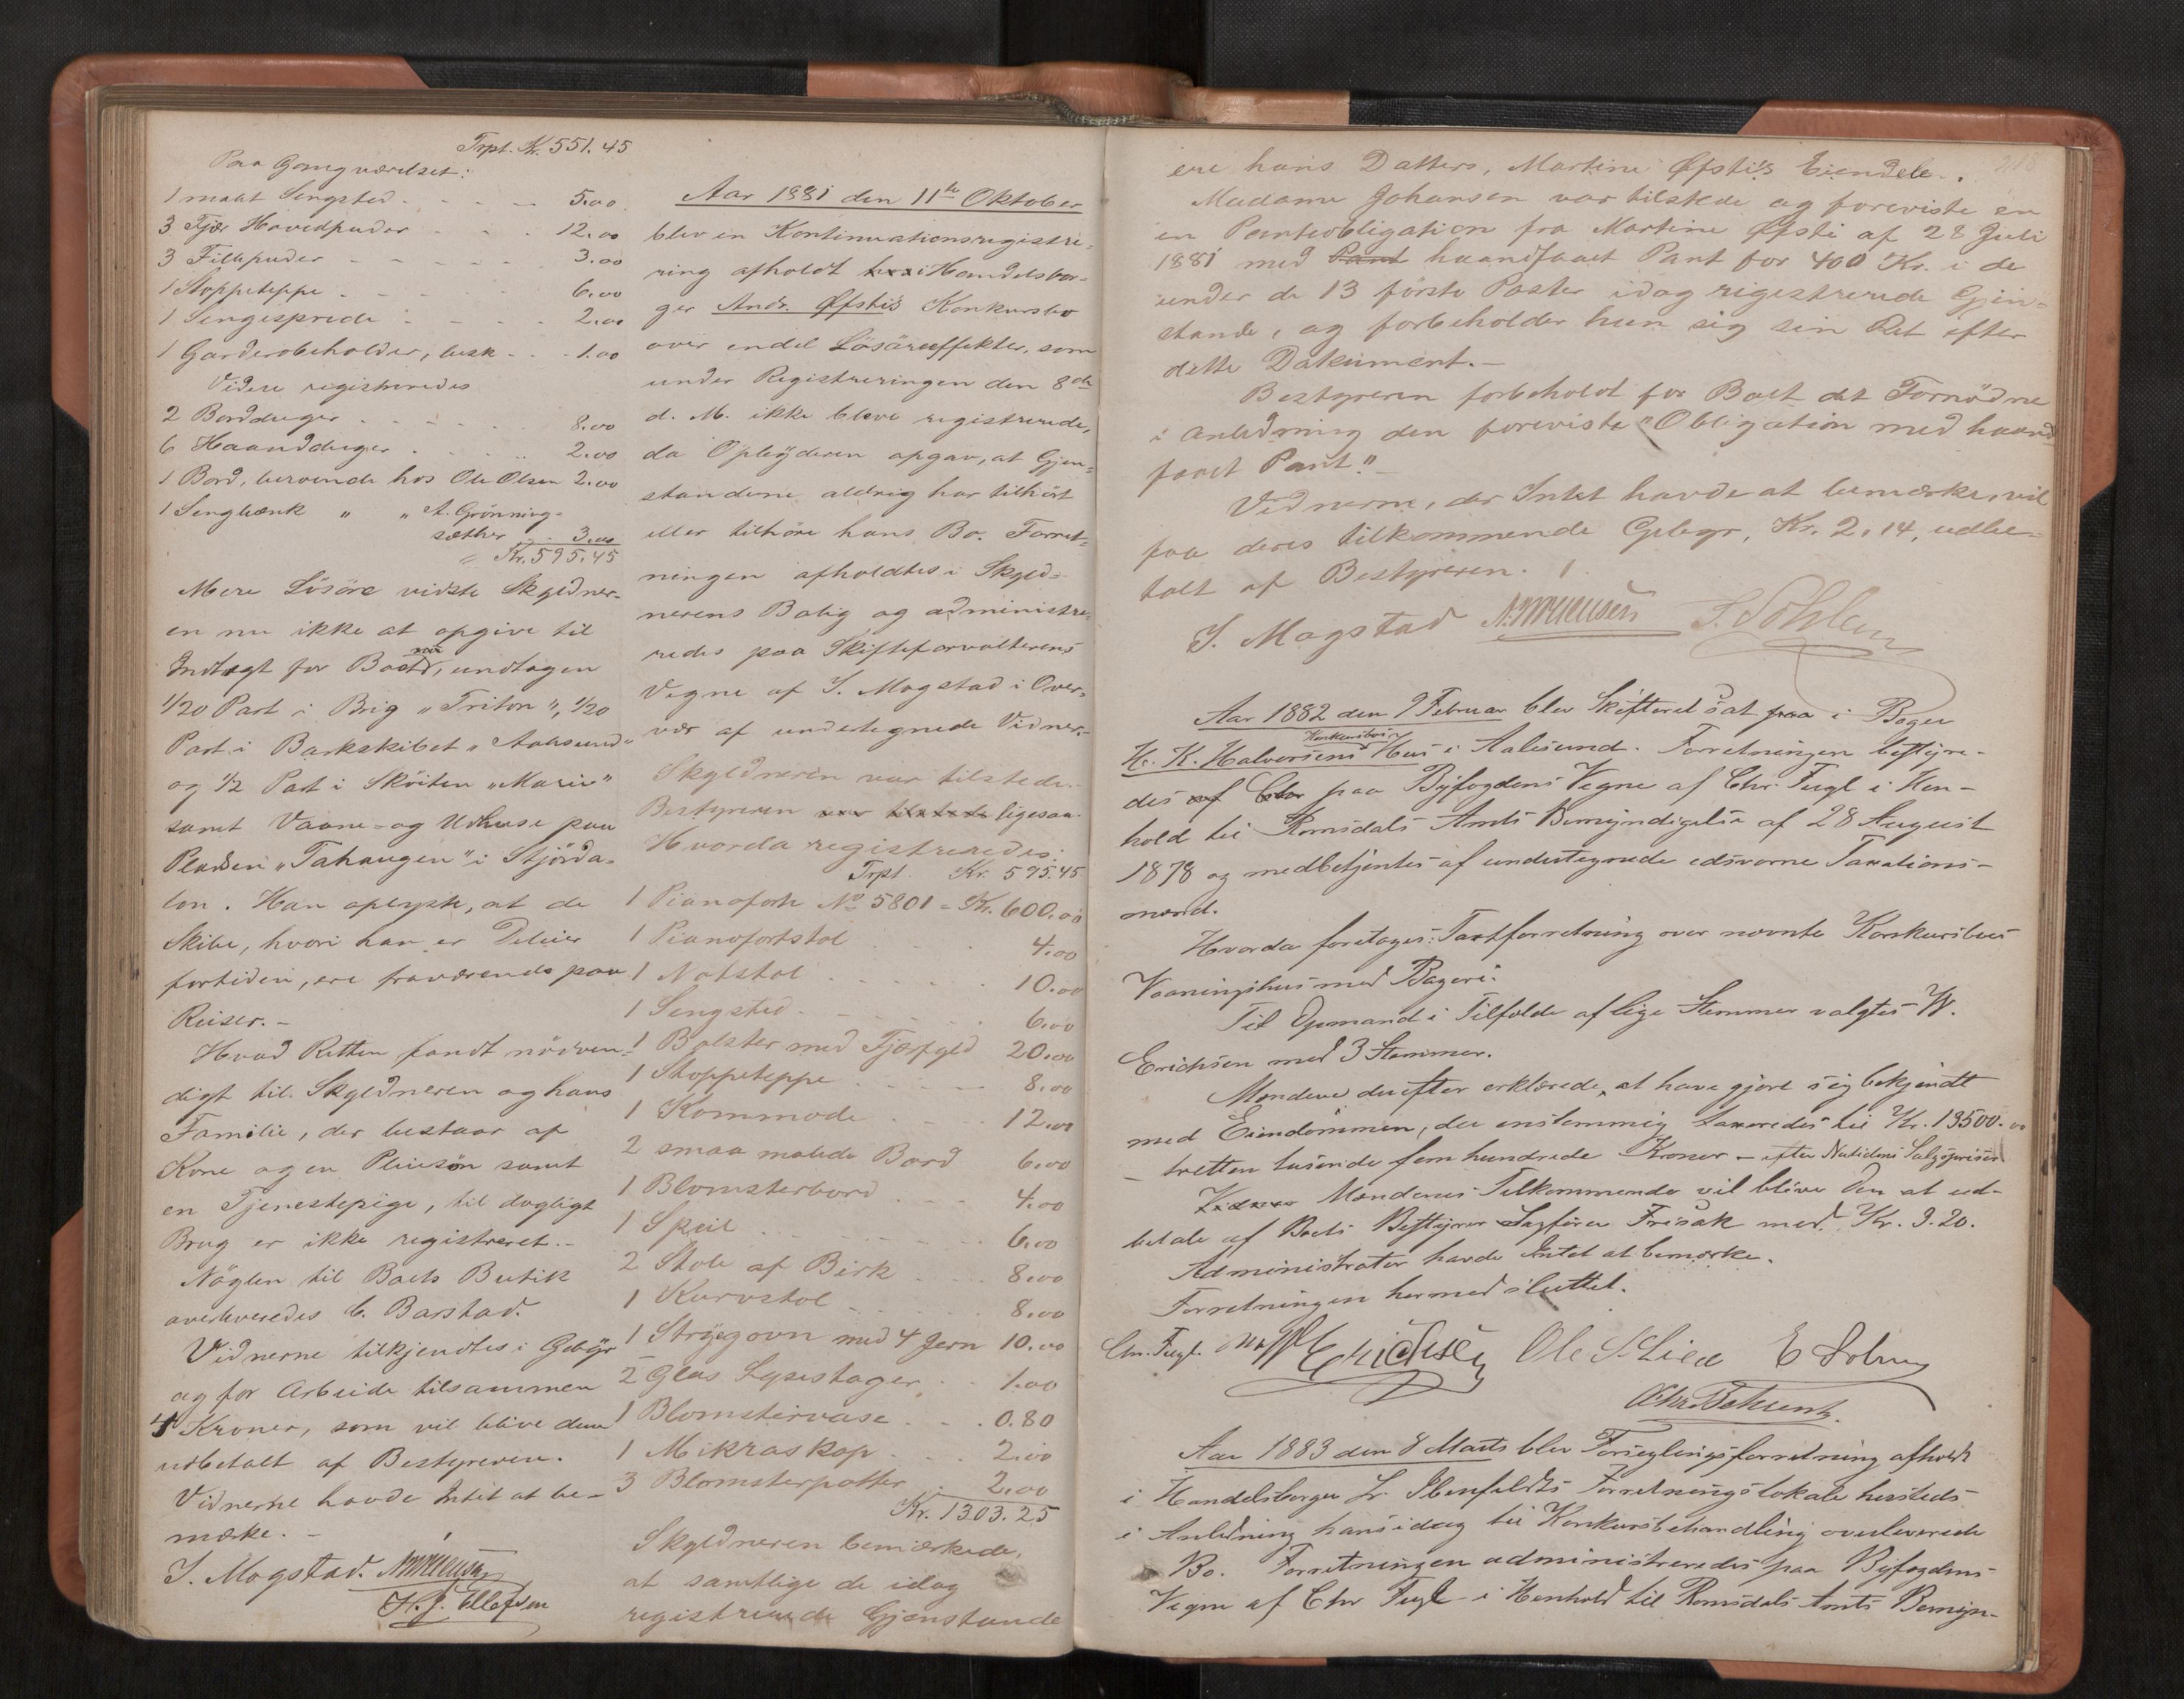 Trpt. Kr. 551.45
Paa Gangværelset:
1 malt Sengsted 5.00
3 Fjær Hovedpuder 12.00
3 Filtpuder 3.00
1 Stoppeteppe 6.00
1 Sengesprede 2.00
1 Garderobeholder, besk 1.00
Videre registreredes
2 Bordduger 8.00
6 Haandduger 2.00
1 Bord, beroende hos Ole Olsen 2.00
1 Sengbænk " " A. Grönning-
sæther 3.00
Kr. 595.45
Mere Lösöre vidste Skyldner-
en nu ikke at opgive til
Indtægt for Boet, undtagen
1/20 Part i Brig "Triton", 1/20
Part i Barkskibet "Aalesund"
og 1/2 Part i Sköiten "Marie"
samt Vaane- og Udhuse paa
Pladsen "Tahaugen" i Stjörda-
len. Han oplyste, at de
Skibe, hvori han er Deleier
fortiden, ere fraværende paa
Reiser.-
Hvad Retten fandt nödven-
digt til Skyldneren og hans
Familie, der bestaar af
Kone og en Pleiesön samt
en Tjenestepige, til dagligt
Brug er ikke registreret.-
Nöglen til Boets Butik
overleveredes C. Barstad.
Vidnerne tilkjendtes i Gebyr
og for Arbeide tilsammen
4 Kroner, som vil blive dem
udbetalt af Bestyreren.
Vidnerne havde Intet at be-
mærke.-
I. Mogstad.
H. J. Ellefsen
Aar 1881 den 11te Oktober
blev en Kontinuationsregistre-
ring afholdt i Handelsbor-
ger Andr. Øfsti's Konkursbo
over endel Lösöreeffekter, som
under Registreringen den 8de
d. M. ikke bleve registrerede,
da Opbyderen opgav, at Gjen-
standene aldrig har tilhört
eller tilhöre hans Bo. Forret-
ningen afholdtes i Skyld-
nerens Bolig og administre-
redes paa Skifteforvalterens
Vegne af I. Mogstad i Over-
vær af undertegnede Vidner.-
Skyldneren var tilstede.
Bestyreren var tilstede ligesaa.
Hvorda registreredes:
Trpt. Kr. 595.45
1 Pianoforte No 5801 = Kr. 600.00
1 Pianofortstol 4.00
1 Notstol 10.00
1 Sengsted 6.00
1 Bolster med Fjærfyld 20.00
1 Stoppeteppe 8.00
1 Kommode 12.00
2 smaa malede Bord 6.00
1 Blomsterbord 4.00
1 Speil 6.00
2 Stole af Birk 8.00
1 Kurvstol 8.00
1 Strygovn med 4 Jern 10.00
2 Glas Lysestager 1.00
1 Blomstervase 0.80
1 Mikroskop 2.00
3 Blomsterpotter 2.00
Kr. 1303.25
Skyldneren bemærkede,
at samtlige de idag
registrerede Gjenstande
ere hans Datters, Martine Øfsti's Eiendele.
Madame Johansen var tilstede og foreviste en
en Panteobligation fra Martine Øfsti af 28 Juli
1881 med Pant haandfaaet Pant for 400 Kr. i de
under de 13 förste Poster idag rigestrerede Gjen-
stande, og forbeholder hun sig sin Ret efter
dette Dokument.-
Bestyreren forbeholdt for Boet det Fornödne
i Anledning den foreviste "Obligation med haand
faaet Pant."
Vidnerne, der Intet havde at bemærke, vil
faa deres tilkommende Gebyr, Kr. 2.14, udbe-
talt af Bestyreren.
I. Mogstad
Aar 1882 den 9 Februar blev Skifteret sat paa i Bager
Konkursbos
H. K. Halvorsens Hus i Aalesund. Forretningen bestyre-
des af Chr paa Byfogdens Vegne af Chr. Fugl i Hen-
hold til Romsdals Amts Bemyndigelse af 28 August
1878 og medbetjentes af undertegnede edsvorne Taxations-
mænd.
Hvorda foretoges: Taxtforretning over nævnte Konkursbos
Vaaningshus med Bageri.
Til Opmand i Tilfælde af lige Stemmer valgtes W.
Erichsen med 3 Stemmer.
Mændene derefter erklærede, at have gjort sig bekjendt
med Eiendommen, der enstemmig taxeredes til Kr. 13500.00
- tretten tusende fem hundrede Kroner - efter Nutidens Salgspriser
Mændenes Tilkommende vil blive dem at ud-
betale af Boets Bestyrer Sagförer Frisak med Kr. 9.20.
Administrator havde Intet at bemærke.
Forretningen hermed sluttet.
Chr. Fugl. Erichsen Ole S. Lied
Aar 1883 den 8 Marts blev Forseglingsforretning afholdt
i Handelsborger Forretningslokale hersteds
i Anledning hans idag til Konkursbehandling overleverede
Bo. Forretningen administreredes paa Byfogdens
Vegne af Chr Fugl i Henhold til Romsdals Amts Bemyn-